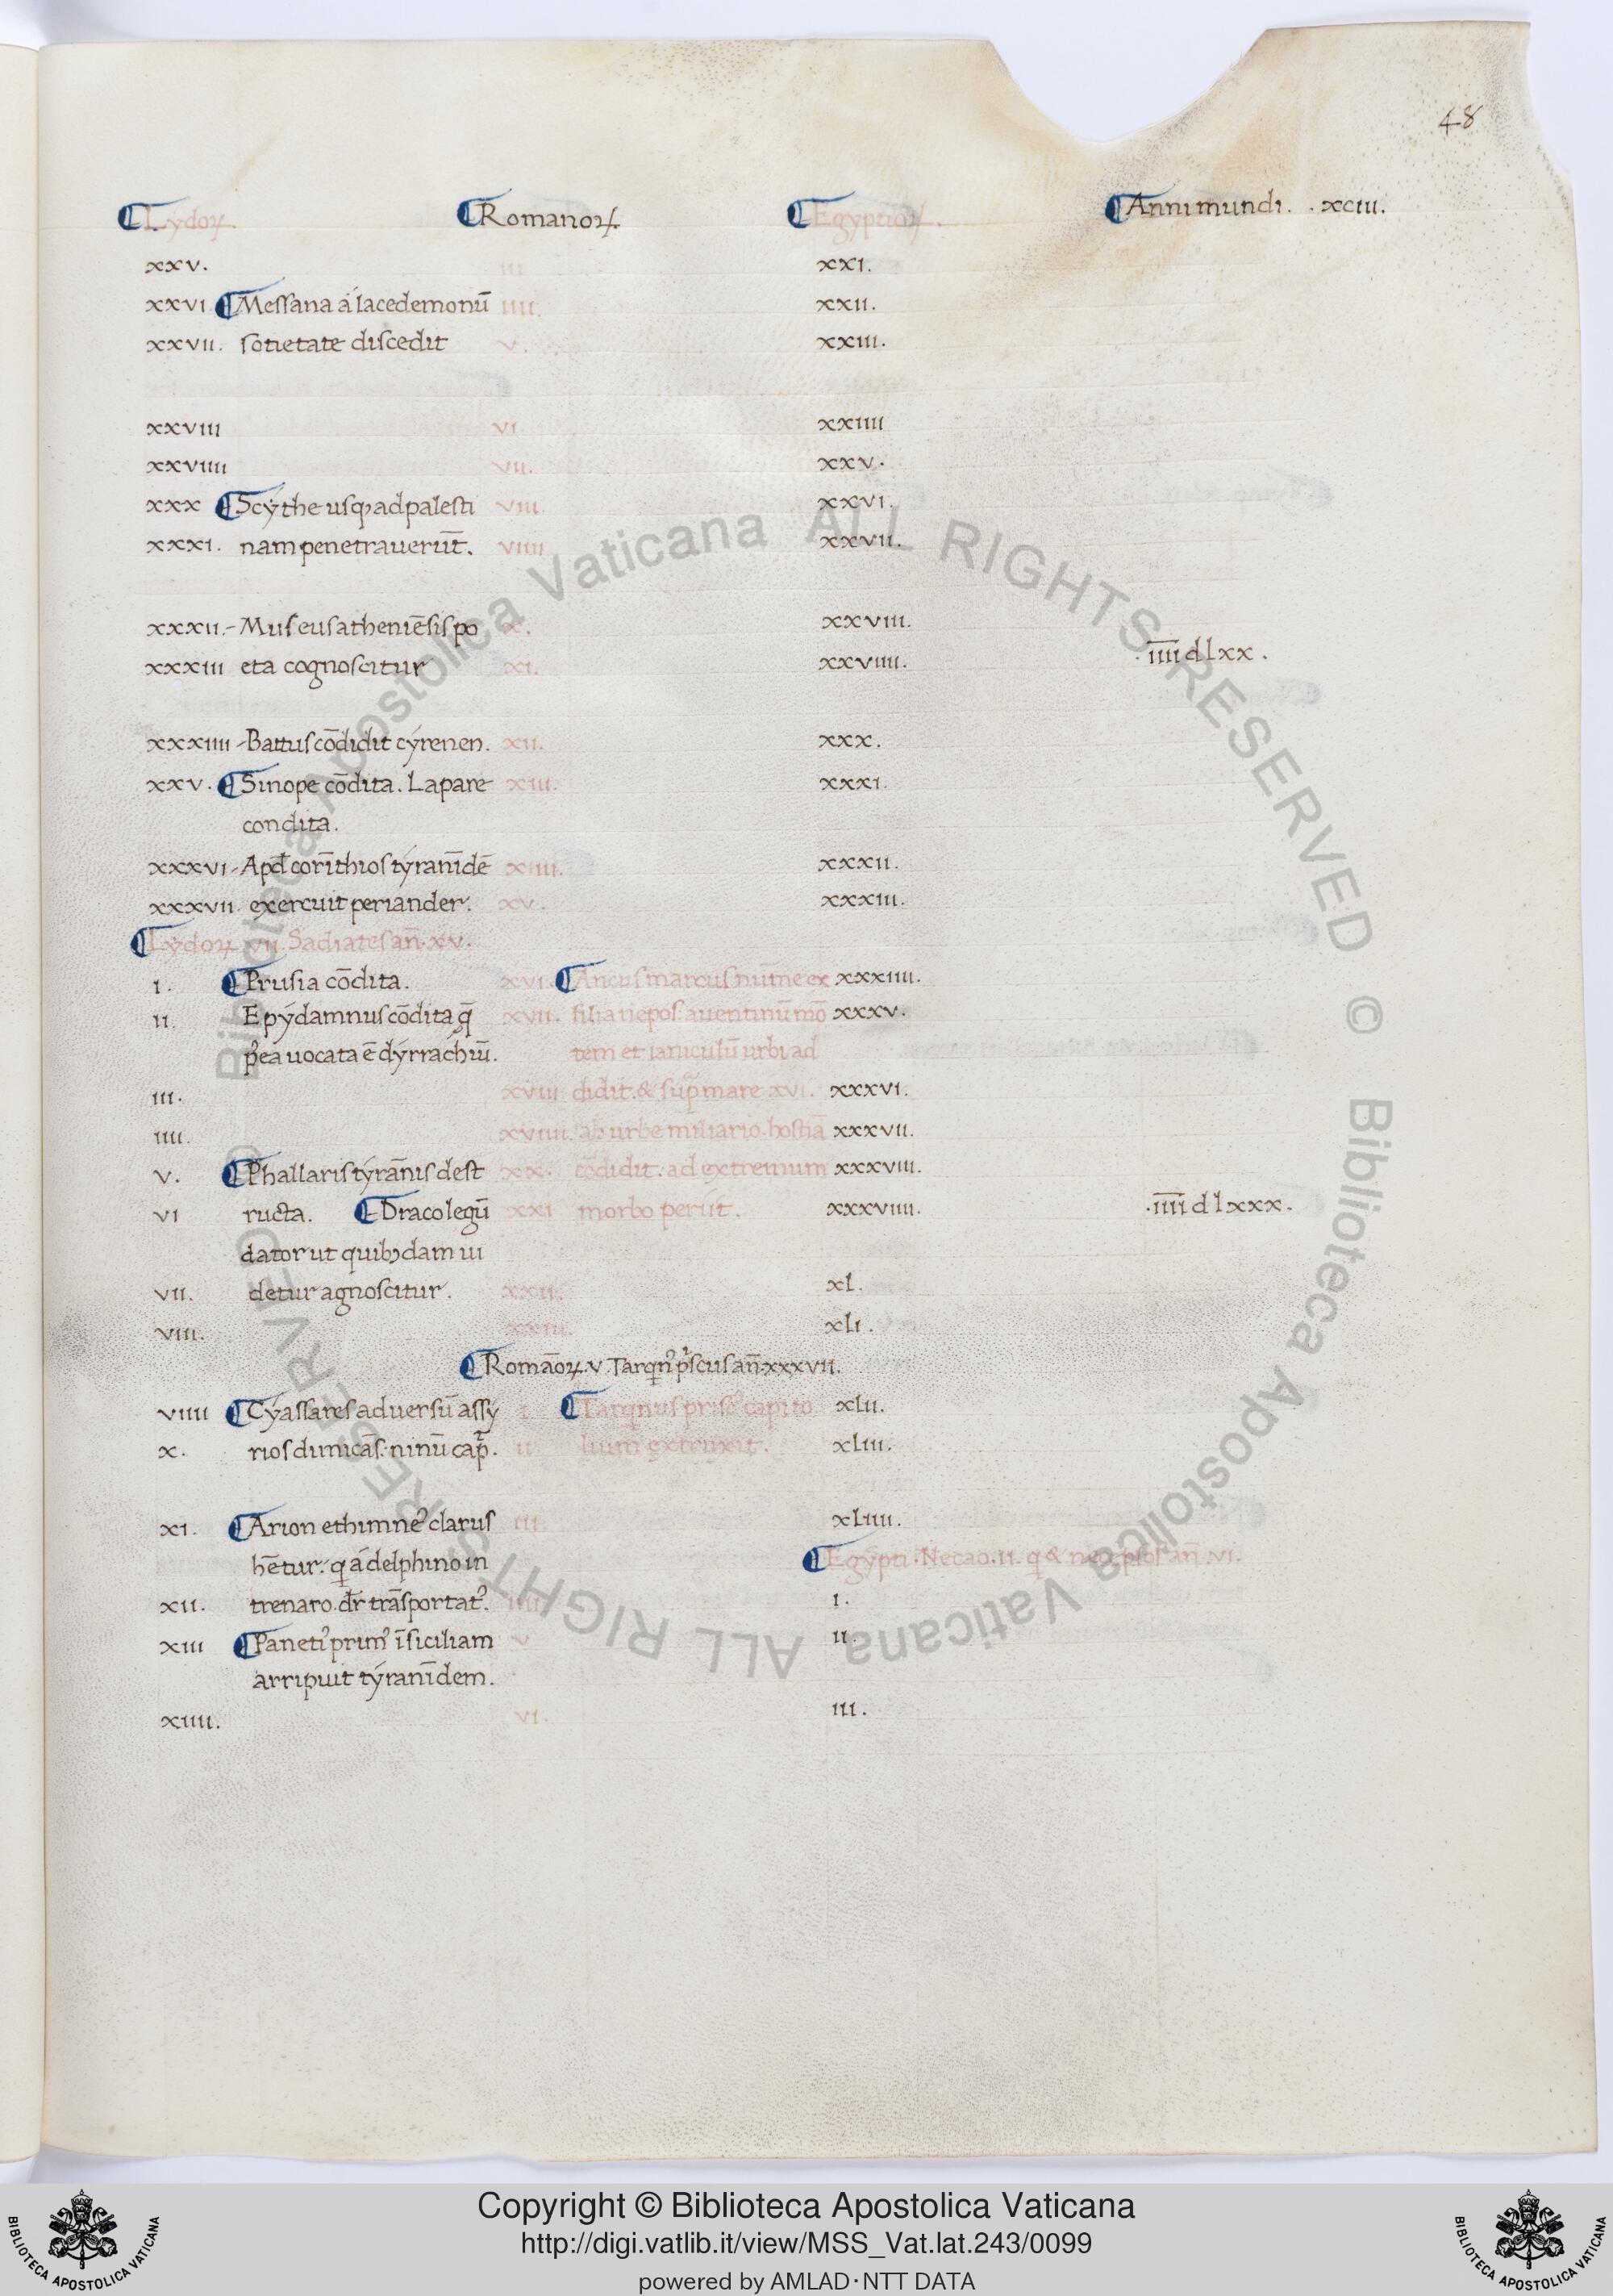 48
¶ Lydoꝝ. ¶ Romanoꝝ ¶ Egyptioꝝ. ¶ Anni mundi. . xciii.
xxv. iii xxi.
xxvi ¶ Messana a lacedemonū iiii. xxii.
xxvii. sotietate discedit v. xxiii.
xxviii vi xxiiii
xxviiii vii. xxv.
xxx ¶ Scythe usqꝫ ad palesti viii xxvi.
xxxi. nam penetrauerūt. viiii xxvii.
xxxii.- Museus atheniēsis po x. xxviii.
xxxiii eta cognoscitur xi. xxviiii. . iiii̅ dlxx.
xxxiiii - Battus cōdidit cyrenen. xii. xxx.
xxv. ¶ Sinope cōdita. Lapare xiii. xxxi.
condita.
xxxvi - Apd̄ corīthios tyranīdē xiiii. xxxii.
xxxvii. exercuit periander. xv. xxxiii.
¶ Lydoꝝ vii. Sadiates an̄. xv.
i. ¶ Prusia cōdita. xvi. ¶ Ancus marcus nume ex xxxiiii.
ii. Epydamnus cōdita q̄ xvii. filia nepos. auentinū mō xxxv.
p̄ea uocata ē dyrrachiū. tem et ianiculū urbi ad
iii. xviii didit. & sup̄ mare xvi. xxxvi.
iiii. xviiii. ab urbe miliario. hostiā xxxvii.
v. ¶ Phallaris tyrānis dest xx. cōdidit. ad extremum xxxviii.
vi ructa. ¶ Draco legū xxi morbo periit. xxxviiii. . iiii̅ dlxxx.
dator ut quibꝫdam ui
vii. detur agnoscitur. xxii. xl.
viii. xxiii. xli.
¶ Romāoꝝ. v. Tarqn᾿ p̄scus an̄. xxxvii.
viiii ¶ Cyassares aduersū assy i ¶ Tarqnus prisc᾿ capito xlii.
x. rios dimicās. ninū cap̄. ii lium extruxit. xliii.
xi. ¶ Arion ethimne᾿ clarus iii xliiii.
hētur. q a delphino in ¶ Egypti. Necao. ii. q & an̄. vi.
xii. trenaro. dr̄ trāsportat᾿. iiii i.
xiii ¶ Paneti᾿ prim᾿ ī siciliam v ii.
arripuit tyranīdem.
xiiii. vi. iii.
Biblioteca Apostolica Vaticana ALL RIGHTS RESERVED © Biblioteca Apostolica Vaticana ALL RIGHTS RESERVED ©
Copyright © Biblioteca Apostolica Vaticana
http://digi.vatlib.it/view/MSS_Vat.lat.243/0099
powered by AMLAD·NTT DATA
BIBLIOTECA APOSTOLICA VATICANA
BIBLIOTECA APOSTOLICA VATICANA